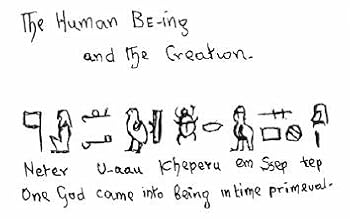 The Human BE-ing
and the Creation.
Neter U-aau Kheperu em Ssep tep
One God came into Being in time primeval.